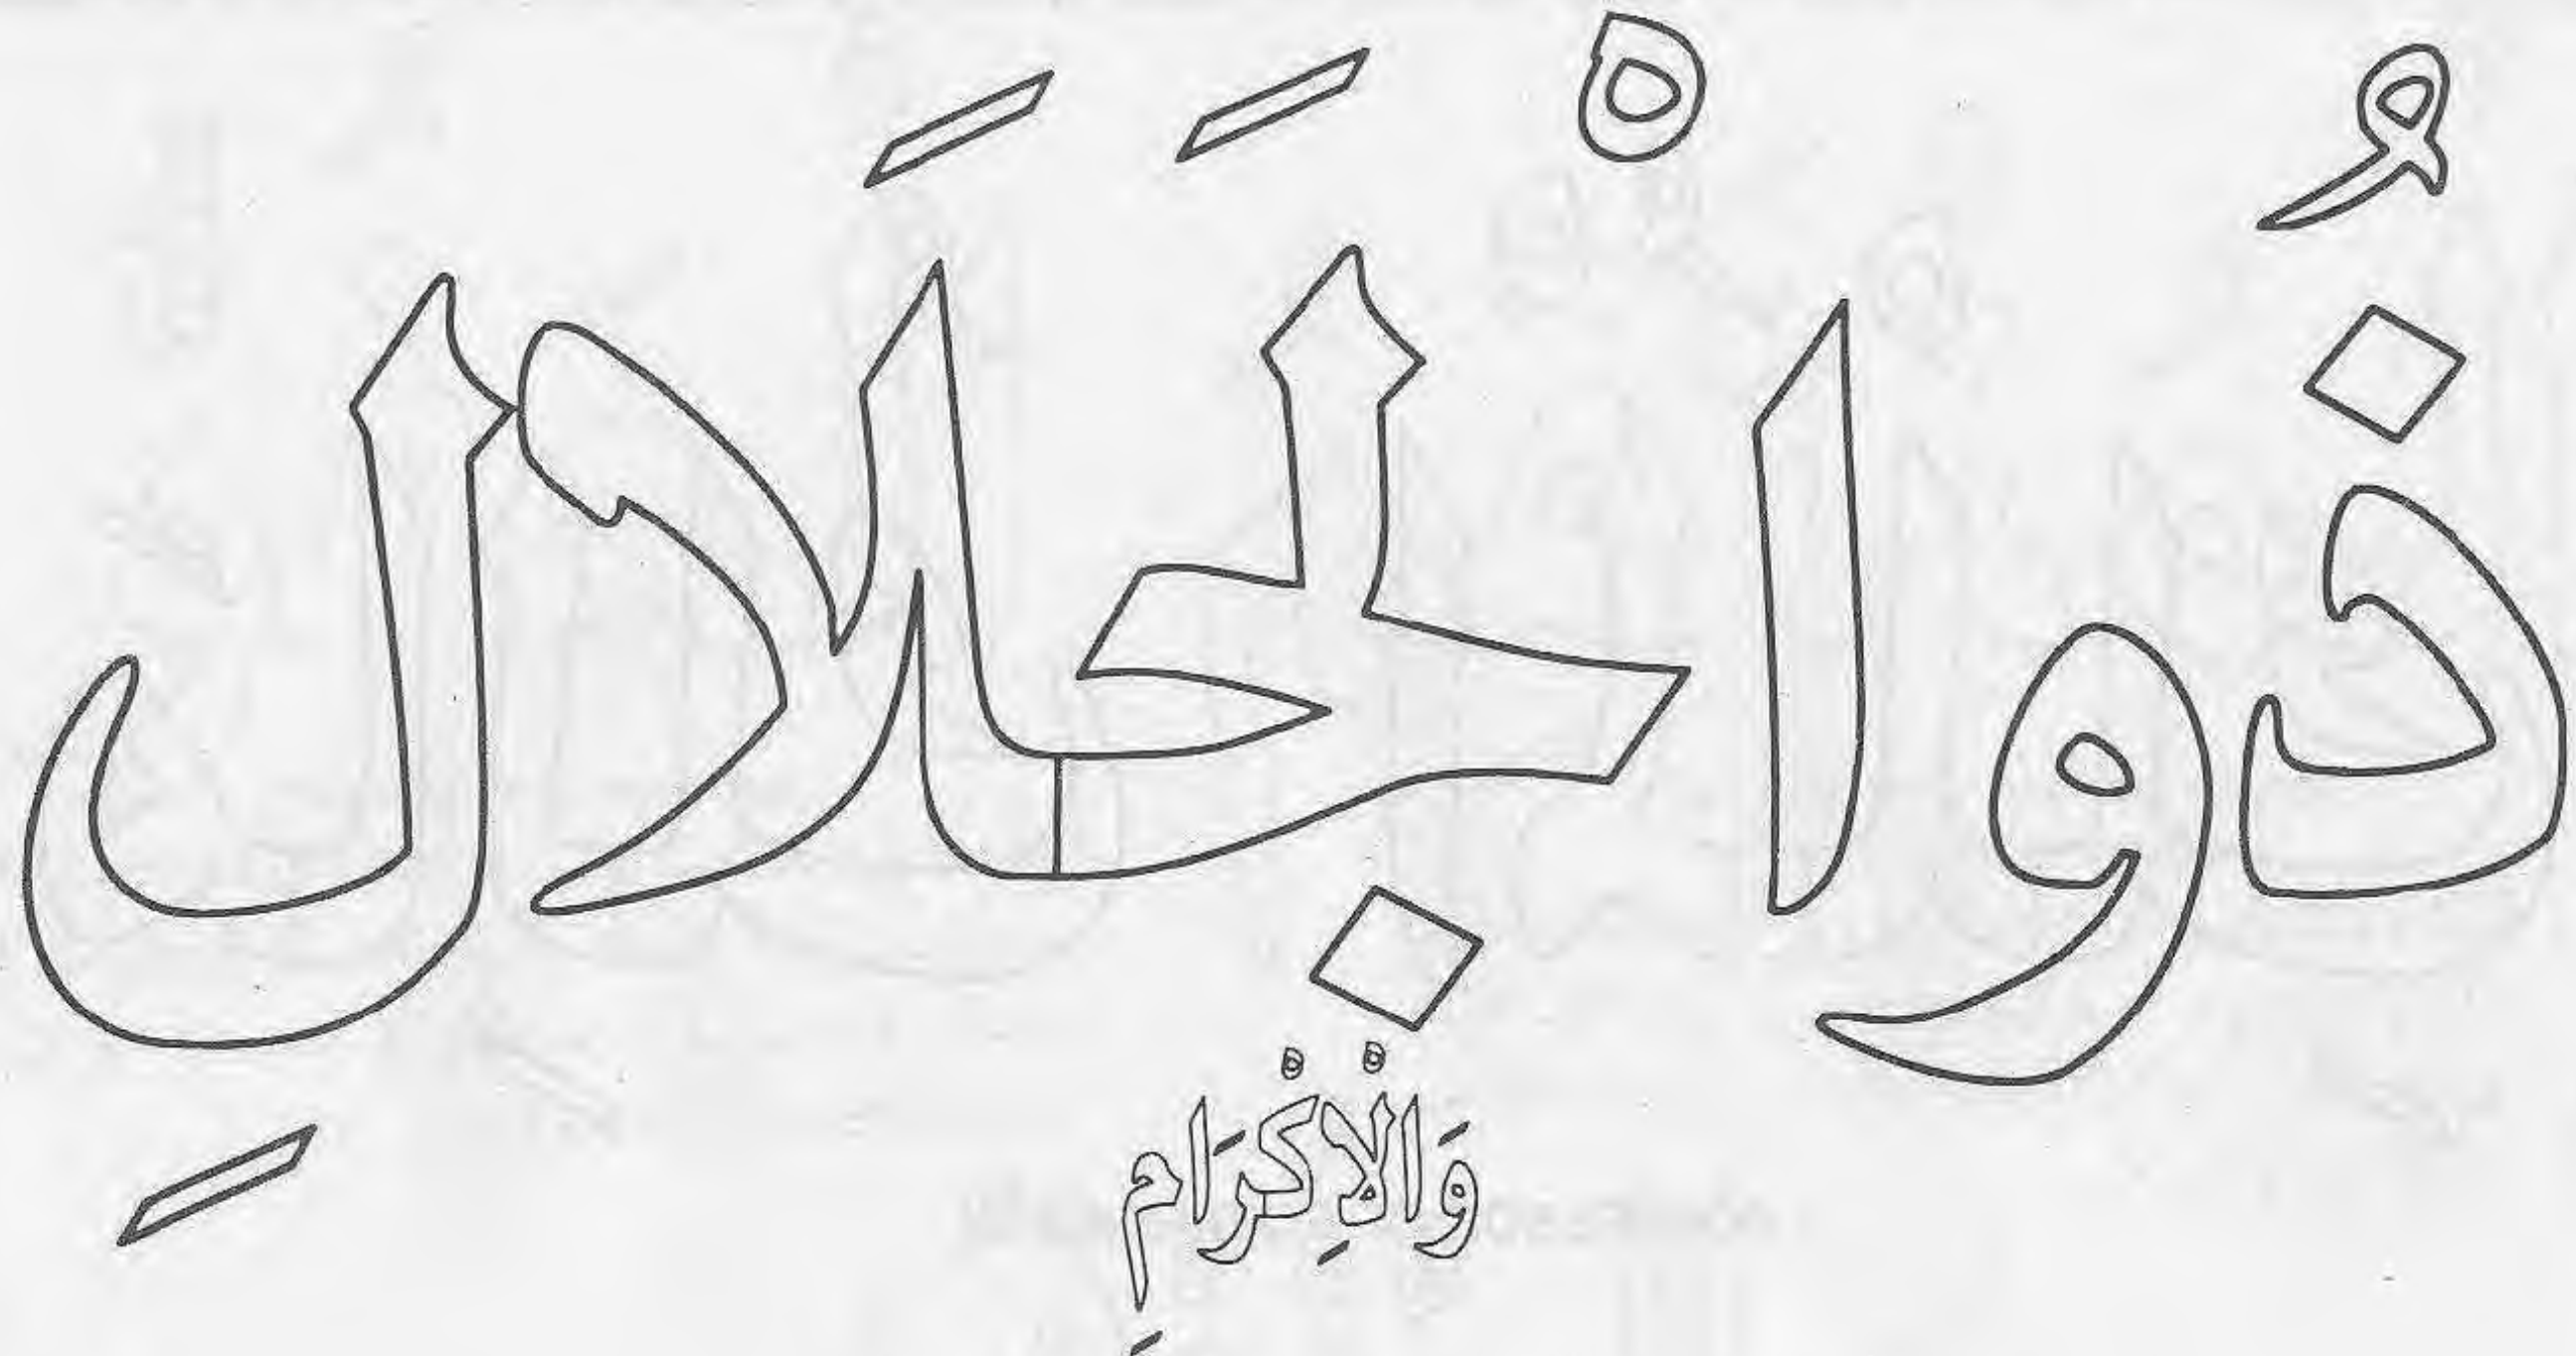 ذُوالْجَلَالِ
وَالْاِكْرَامِ